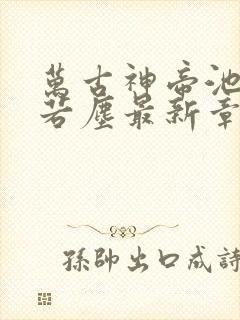 萬古神帝池
若塵最新章
孫帥出口成詩